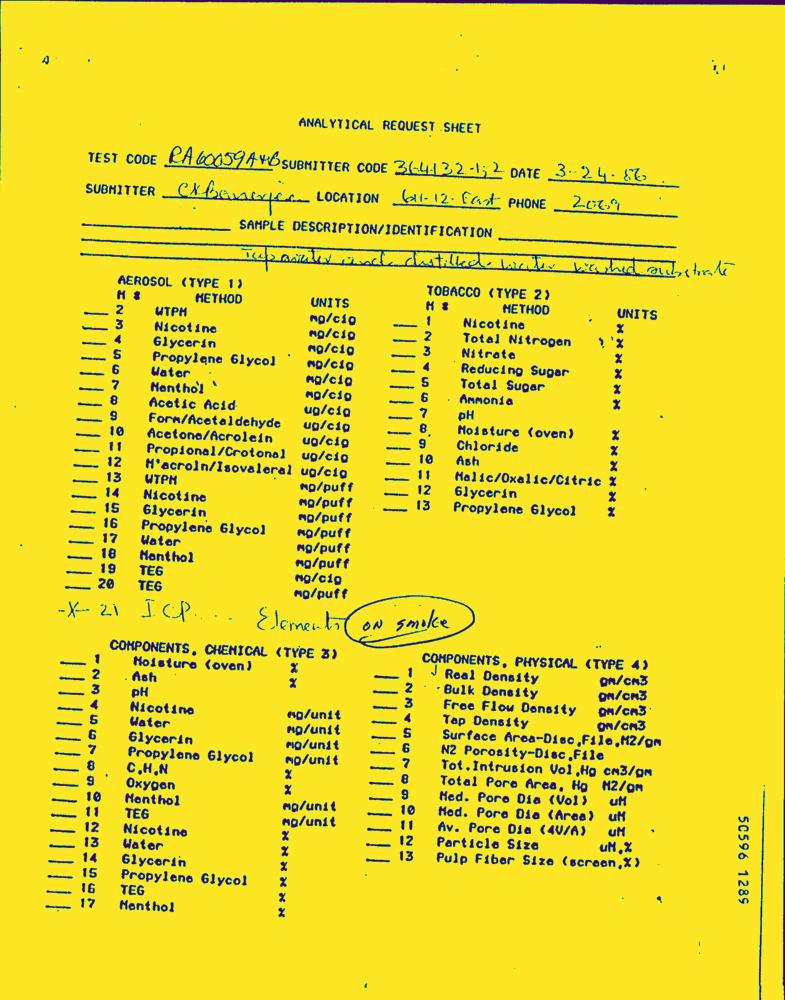 ANALYTICAL REQUEST SHEET
TEST CODE RA60059A+B SUBMITTER CODE 36-4132-1;2 DATE 3-24-86
SUBMITTER CKBanerjee LOCATION 611-12-East PHONE 2069
SAMPLE DESCRIPTION/IDENTIFICATION
Tapwater and distilled water washed substrate
AEROSOL (TYPE 1)
M # METHOD UNITS
2 WTPM mg/cig
3 Nicotine mg/cig
4 Glycerin mg/cig
5 Propylene Glycol mg/cig
6 Water mg/cig
7 Menthol mg/cig
8 Acetic Acid ug/cig
9 Form/Acetaldehyde ug/cig
10 Acetone/Acrolein ug/cig
11 Propional/Crotonal ug/cig
12 M'acroln/Isovaleral ug/cig
13 WTPM mg/puff
14 Nicotine mg/puff
15 Glycerin mg/puff
16 Propylene Glycol mg/puff
17 Water mg/puff
18 Menthol mg/puff
19 TEG mg/cig
20 TEG mg/puff
-X- 21 ICP.... Elements ON smoke
TOBACCO (TYPE 2)
M # METHOD UNITS
1 Nicotine %
2 Total Nitrogen %
3 Nitrate %
4 Reducing Sugar %
5 Total Sugar %
6 Ammonia %
7 pH
8 Moisture (oven) %
9 Chloride %
10 Ash %
11 Malic/Oxalic/Citric %
12 Glycerin %
13 Propylene Glycol %
COMPONENTS, CHEMICAL (TYPE 3)
1 Moisture (oven) %
2 Ash %
3 pH
4 Nicotine mg/unit
5 Water mg/unit
6 Glycerin mg/unit
7 Propylene Glycol mg/unit
8 C,H,N %
9 Oxygen %
10 Menthol mg/unit
11 TEG mg/unit
12 Nicotine %
13 Water %
14 Glycerin %
15 Propylene Glycol %
16 TEG %
17 Menthol %
COMPONENTS, PHYSICAL (TYPE 4)
1 Real Density gm/cm3
2 Bulk Density gm/cm3
3 Free Flow Density gm/cm3
4 Tap Density gm/cm3
5 Surface Area-Disc,File,M2/gm
6 N2 Porosity-Disc,File
7 Tot.Intrusion Vol,Hg cm3/gm
8 Total Pore Area, Hg M2/gm
9 Med. Pore Dia (Vol) uM
10 Med. Pore Dia (Area) uM
11 Av. Pore Dia (4V/A) uM
12 Particle Size uM,%
13 Pulp Fiber Size (screen,%)
50596 1289